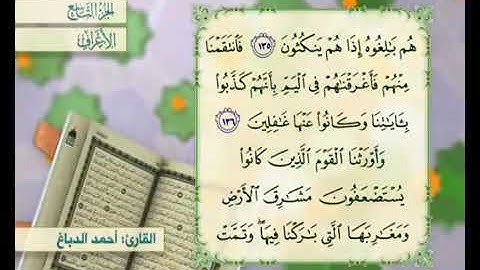 الجزء التاسع
الأعراف
هُم بَٰلِغُوهُ إِذَا هُمْ يَنكُثُونَ ١٣٥ فَٱنتَقَمْنَا
مِنْهُمْ فَأَغْرَقْنَٰهُمْ فِى ٱلْيَمِّ بِأَنَّهُمْ كَذَّبُوا۟
بِـَٔايَٰتِنَا وَكَانُوا۟ عَنْهَا غَٰفِلِينَ ١٣٦
وَأَوْرَثْنَا ٱلْقَوْمَ ٱلَّذِينَ كَانُوا۟
يُسْتَضْعَفُونَ مَشَٰرِقَ ٱلْأَرْضِ
وَمَغَٰرِبَهَا ٱلَّتِى بَٰرَكْنَا فِيهَا ۖ وَتَمَّتْ
القارئ: أحمد الدباغ